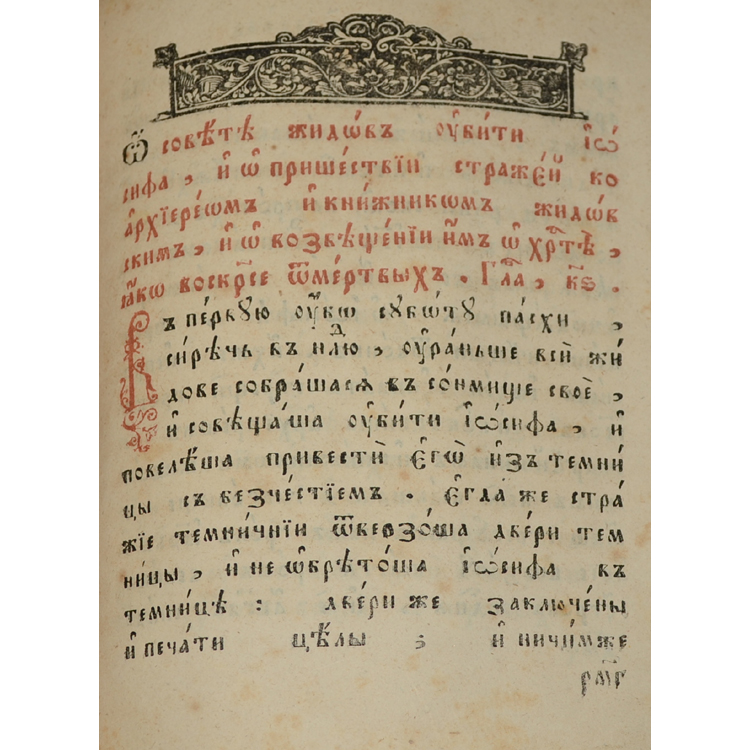 Ѿ совѣ́тѣ жидѡ́въ ᲂу҆би́ти і҆ѡ́
сифа, и҆ ѡ҆ прише́ствїи стражє́й ко
а҆рхїере́ѡмъ и҆ кни́жникѡмъ жидѡ́в
скимъ, и҆ ѡ҆ возвѣще́нїи и҆̀мъ ѡ҆ хрⷭ҇тѣ̀,
ꙗ҆́кѡ воскр҃се ѿ ме́ртвыхъ. Гла҃, к҃ѕ.
Въ пе́рвꙋю ᲂу҆́бѡ сꙋбѡ́тꙋ пасхи,
си́рѣчь въ нⷣлю, ᲂу҆ра́ньше всѝ жи́
дове собра́шася въ со́нмище своѐ,
и҆ совѣща́ша ᲂу҆би́ти і҆ѡ́сифа, и҆
повелѣ́ша привестѝ є҆гѡ̀ и҆зъ темни́
цы съ безче́стїемъ. Є҆гда́ же стра́
жїе темни́чнїи ѿверзо́ша двери тем
ни́цы, и҆ не ѡ҆брѣто́ша і҆ѡ́сифа въ
темни́цѣ: две́ри же заключе́ны
и҆ печа́ти цѣ́лы, и҆ ничи́мже
рмⷢ҇